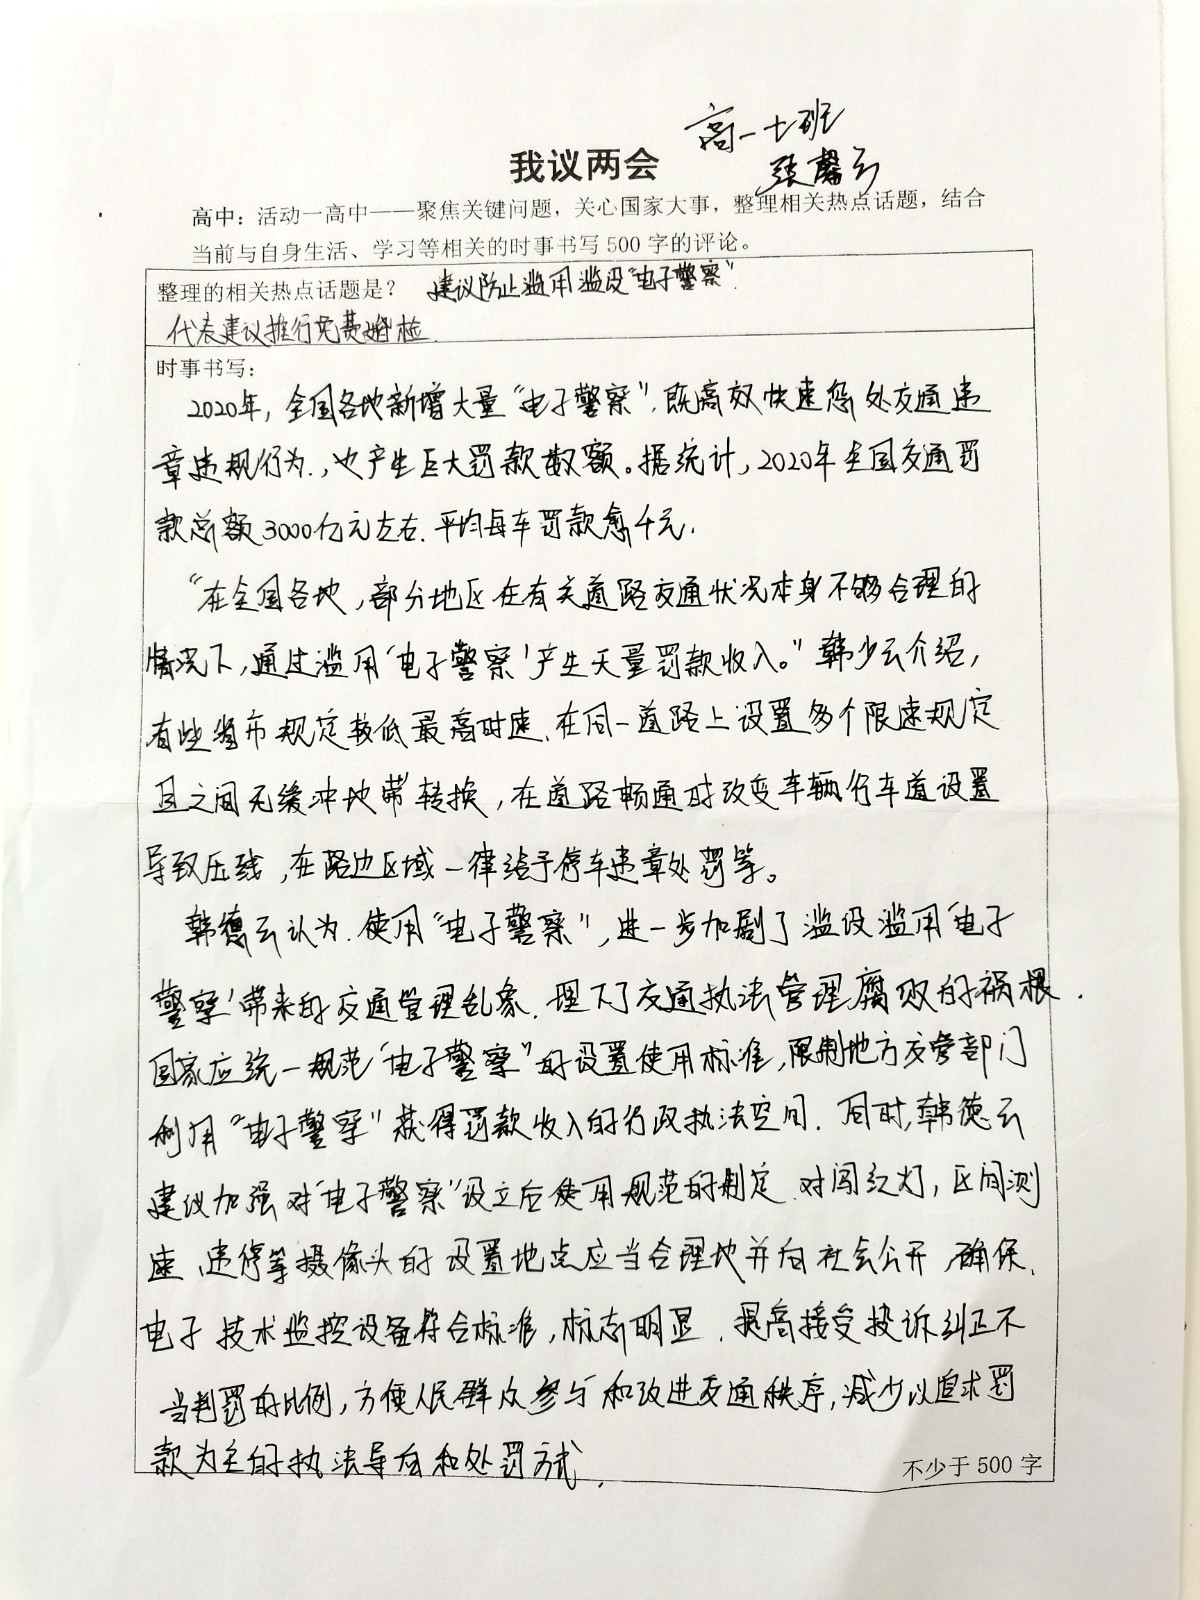 高一七班
我议两会
张馨云
高中：活动一高中——聚焦关键问题，关心国家大事，整理相关热点话题，结合
当前与自身生活、学习等相关的时事书写500字的评论。
整理的相关热点话题是？ 建议防止滥用滥设“电子警察”.
代表建议推行免费婚检.
时事书写：
2020年，全国各地新增大量“电子警察”.既高效快速惩处交通违
章违规行为.，也产生巨大罚款数额。据统计，2020年全国交通罚
款总额3000亿元左右.平均每车罚款愈千元.
“在全国各地，部分地区在有关道路交通状况本身不够合理的
情况下，通过滥用‘电子警察’产生天量罚款收入。”韩少云介绍，
有些省市规定较低最高时速.在同一道路上设置多个限速规定
且之间无缓冲地带转换，在道路畅通时改变车辆行车道设置
导致压线，在路边区域一律给予停车违章处罚等。
韩德云认为.使用“电子警察”，进一步加剧了滥设滥用‘电子
警察’带来的交通管理乱象.埋下了交通执法管理腐败的祸根.
国家应统一规范“电子警察”的设置使用标准，限制地方交管部门
利用“电子警察”获得罚款收入的行政执法空间.同时，韩德云
建议加强对“电子警察”设立后使用规范的制定.对闯红灯，区间测
速、违停等摄像头的设置地点应当合理地并向社会公开，确保.
电子技术监控设备符合标准，标志明显.提高接受投诉纠正不
当判罚的比例，方便人民群众参与和改进交通秩序，减少以追求罚
款为主的执法导向和处罚方式.
不少于500字